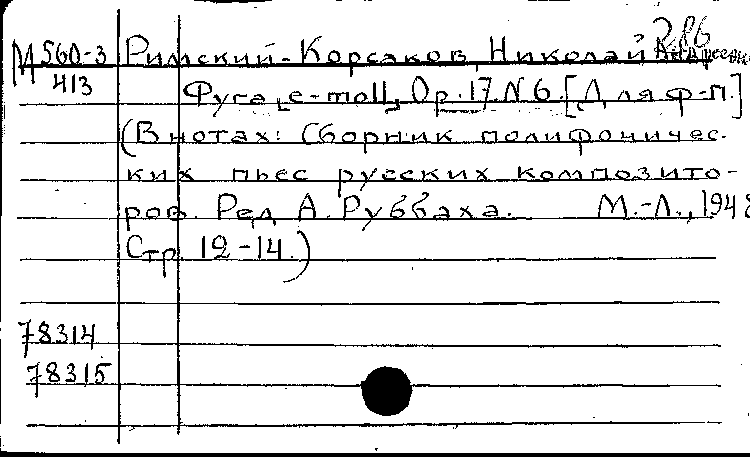 М 560-3 Римский-Корсаков, Николай
413
Фуга, e-moll, Op. 17. N 6. [Для ф-п.]
(В нотах: Сборник полифоничес-
ких пьес русских композито-
ров. Ред. А. Руббаха. М.-Л., 1948
Стр. 12-14.)
78314
78315